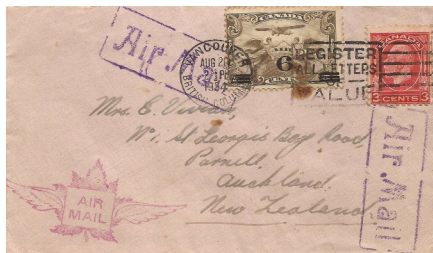 Air Mail
VANCOUVER
AUG 20
1932
BRITISH COLUMBIA
CANADA
6
CENTS
REGISTER
ALL LETTERS
OF
VALUE
CANADA
3 CENTS 3
Mrs. E.
St Georges Bay Road,
Parnell,
Auckland,
New Zealand
AIR
MAIL
Air Mail